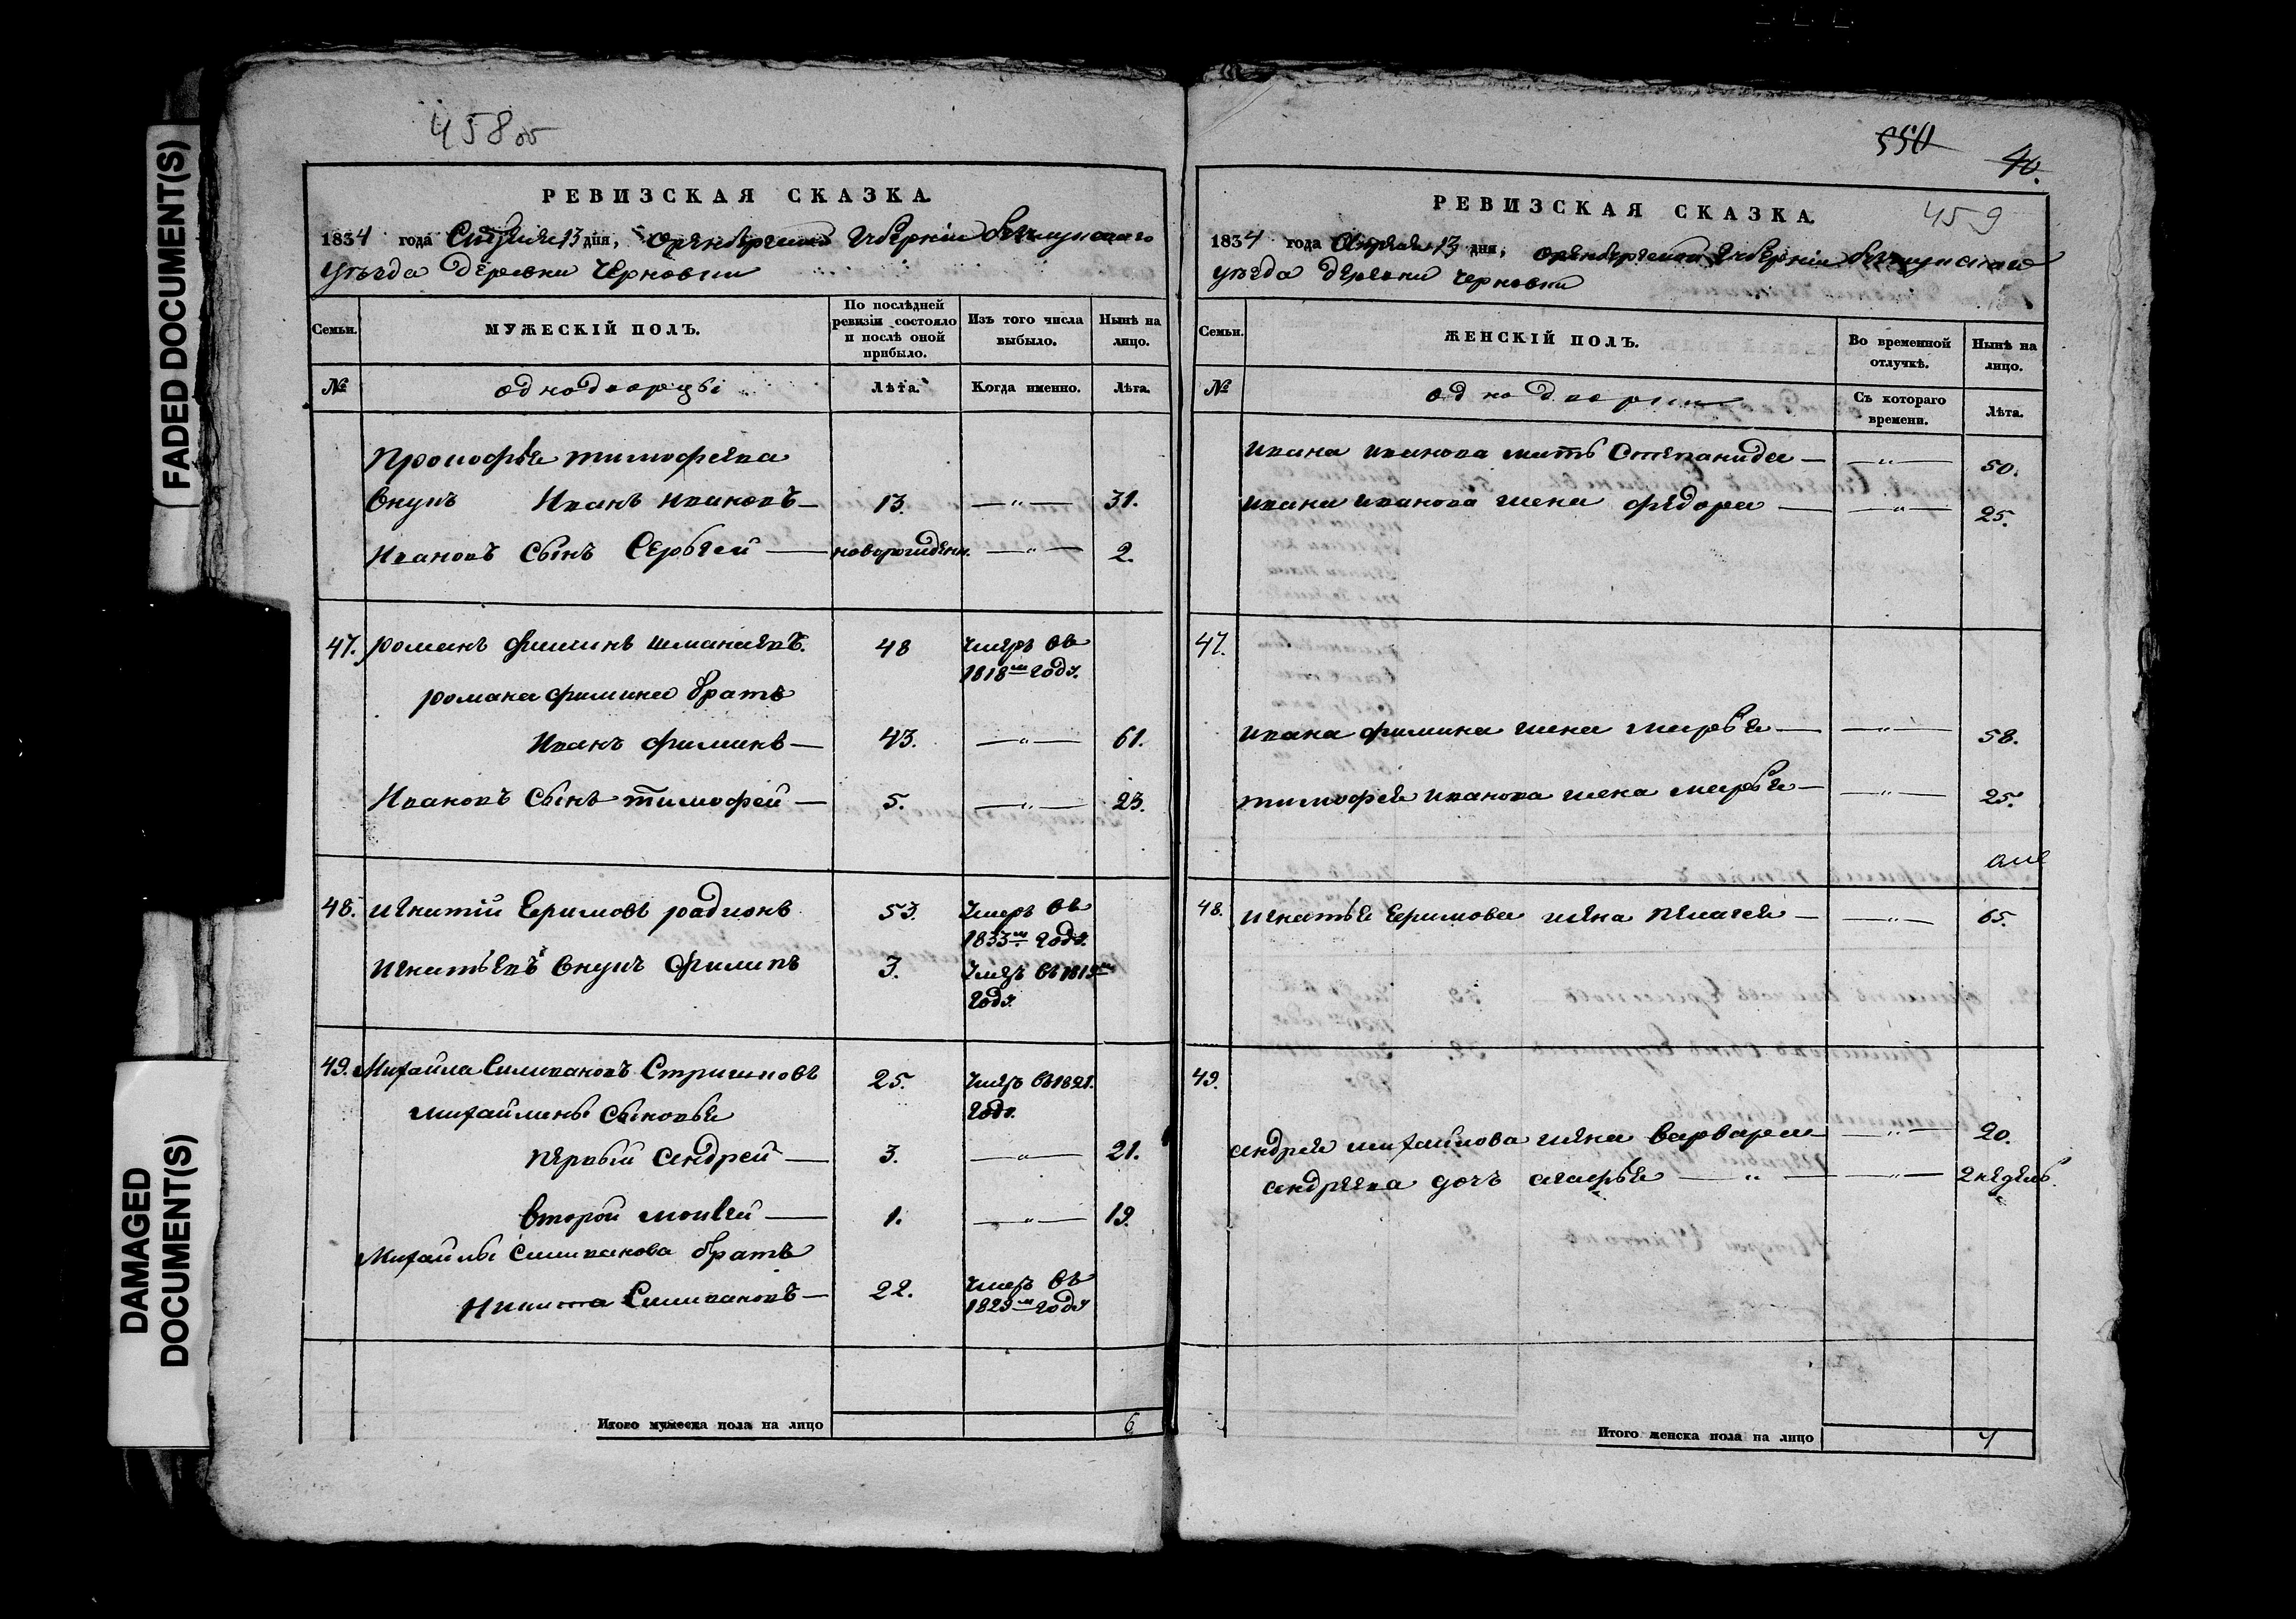 FADED DOCUMENT(S)
DAMAGED
DOCUMENT(S)
458об
РЕВИЗСКАЯ СКАЗКА.
1834 года Апреля 13 дня, Оренбургской Губернiи
уѣзда деревни Черновки
Семьи.
МУЖЕСКІЙ ПОЛЪ.
По послѣдней ревизіи состояло и послѣ оной прибыло.
Изъ того числа выбыло.
Нынѣ на лицо.
№
однодворцы
Лѣта.
Когда именно.
Лѣта.
Прокофья тимофеева
внукъ Иванъ Ивановъ — 13. —"— 31.
Ивановъ Сынъ Сергѣй — новорожденн. —"— 2.
47. романъ фиминъ 48 Умеръ въ
1818м году.
романа фимина братъ
Иванъ фиминъ — 43. —"— 61.
Ивановъ Сынъ тимофей — 5. —"— 23.
48. игнатiй Ефимовъ радионъ 53. Умеръ въ
1833м году.
игнатьевъ внукъ филипъ 3. Умеръ въ 1819м
году.
49. Михайла Силивановъ Стрижковъ 25. Умеръ въ 1821.
году.
михайлины сыновья
первый андрей — 3. —"— 21.
второй моисей — 1. —"— 19.
Михайлы Силиванова братъ
Никита Силивановъ — 22. Умеръ въ
1829м году
Итого мужеска пола на лицо 6
550
40.
459
РЕВИЗСКАЯ СКАЗКА.
1834 года Апреля 13 дня, Оренбургской Губернiи
уѣзда деревни Черновки
Семьи.
ЖЕНСКІЙ ПОЛЪ.
Во временной отлучкѣ.
Нынѣ на лицо.
№
Съ котораго времени.
Лѣта.
ивана иванова мать Степанида — —"— 50.
ивана иванова жена федора — —"— 25.
47.
ивана фимина жена марья — —"— 58.
тимофея иванова жена марья — —"— 25.
48. игнатья Ефимова жена пелагея — —"— 65.
49.
андрея михайлова жена варвара — —"— 20.
андреева дочь агафья — " — —"— 2 недель.
Итого женска пола на лицо